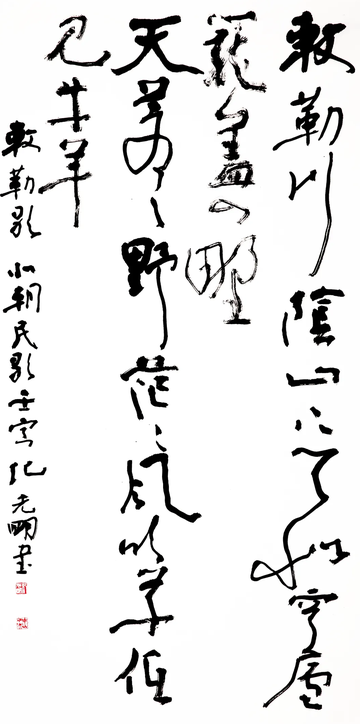 敕勒川陰山下天似穹廬
籠蓋四野
天蒼〻野茫〻風吹草低
見牛羊
敕勒歌 北朝民歌 壬寅 紀光明書